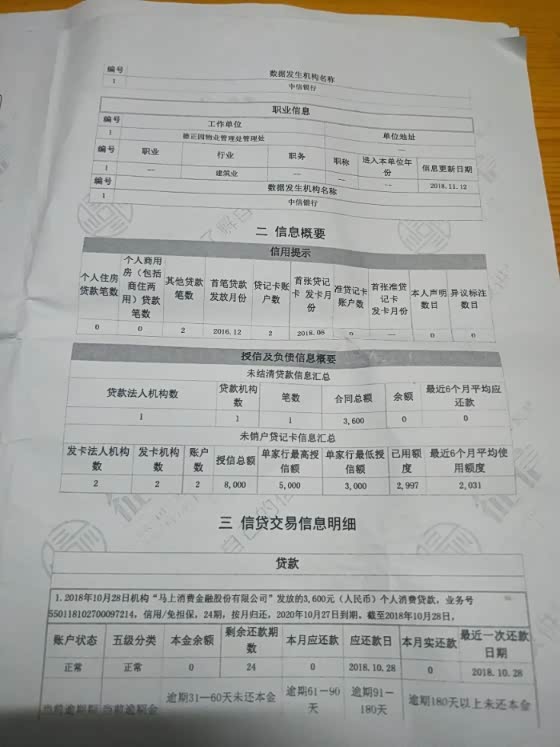 编号 数据发生机构名称
1 中信银行
职业信息
编号 工作单位 单位地址
1 德正园物业管理处管理处 --
编号 职业 行业 职务 职称 进入本单位年份 信息更新日期
1 -- 建筑业 -- -- -- 2018.11.12
编号 数据发生机构名称
1 中信银行
二 信息概要
信用提示
个人住房贷款笔数 个人商用房（包括商住两用）贷款笔数 其他贷款笔数 首笔贷款发放月份 贷记卡账户数 首张贷记卡 发卡月份 准贷记卡账户数 首张准贷记卡 发卡月份 本人声明数目 异议标注数目
0 0 2 2016.12 2 2018.08 0 -- 0 0
授信及负债信息概要
未结清贷款信息汇总
贷款法人机构数 贷款机构数 笔数 合同总额 余额 最近6个月平均应还款
1 1 1 3,600 0 0
未销户贷记卡信息汇总
发卡法人机构数 发卡机构数 账户数 授信总额 单家行最高授信额 单家行最低授信额 已用额度 最近6个月平均使用额度
2 2 2 8,000 5,000 3,000 2,997 2,031
三 信贷交易信息明细
贷款
1.2018年10月28日机构“马上消费金融股份有限公司”发放的3,600元（人民币）个人消费贷款，业务号
550118102700097214，信用/免担保，24期，按月归还，2020年10月27日到期。截至2018年10月28日，
账户状态 五级分类 本金余额 剩余还款期数 本月应还款 应还款日 本月实还款 最近一次还款日期
正常 正常 0 24 0 2018.10.28 0 2018.10.28
当前逾期期 当前逾期金 逾期31—60天未还本金 逾期61－90天 逾期91－180天 逾期180天以上未还本金